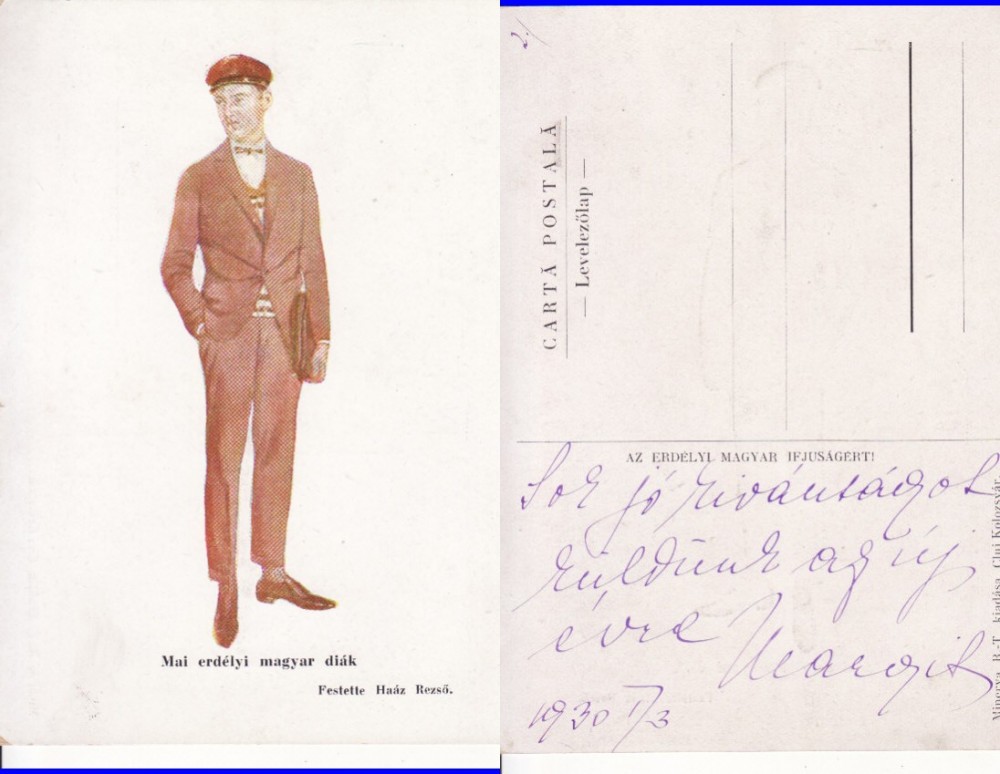 Mai erdélyi magyar diák
Festette Haáz Rezső.
2./
CARTĂ POSTALĂ
— Levelezőlap —
AZ ERDÉLYI MAGYAR IFJUSÁGÉRT!
Sok jó kivánságot
küldünk az új
évre Margit
1930 I/3
Minerva R.-T. kiadása, Cluj-Kolozsvár.